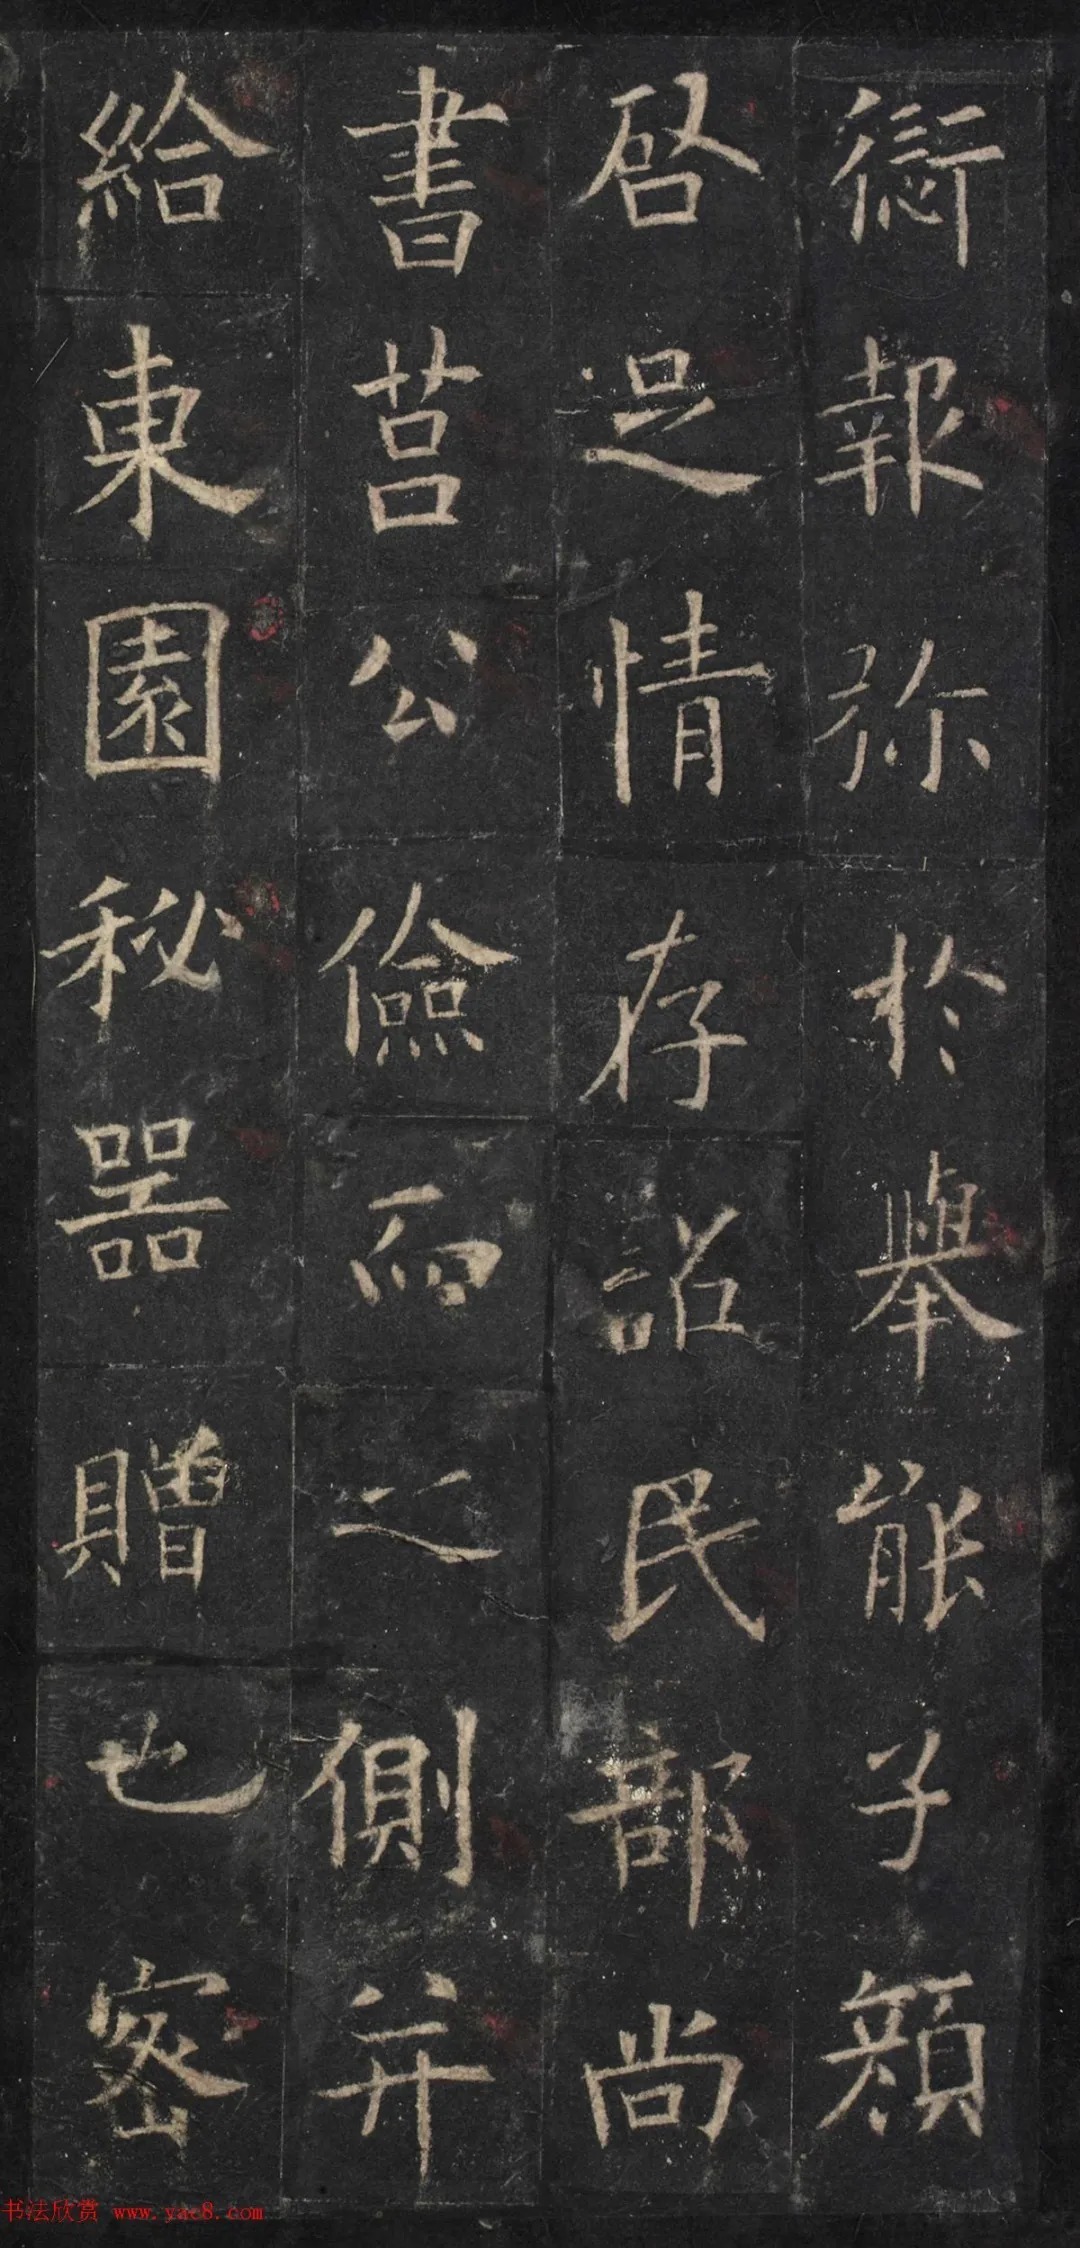 衍報弥於舉能子顔
启足情存詔民部尚
書莒公儉而之側并
給東園秘器贈也密
书法欣赏 www.yac8.com